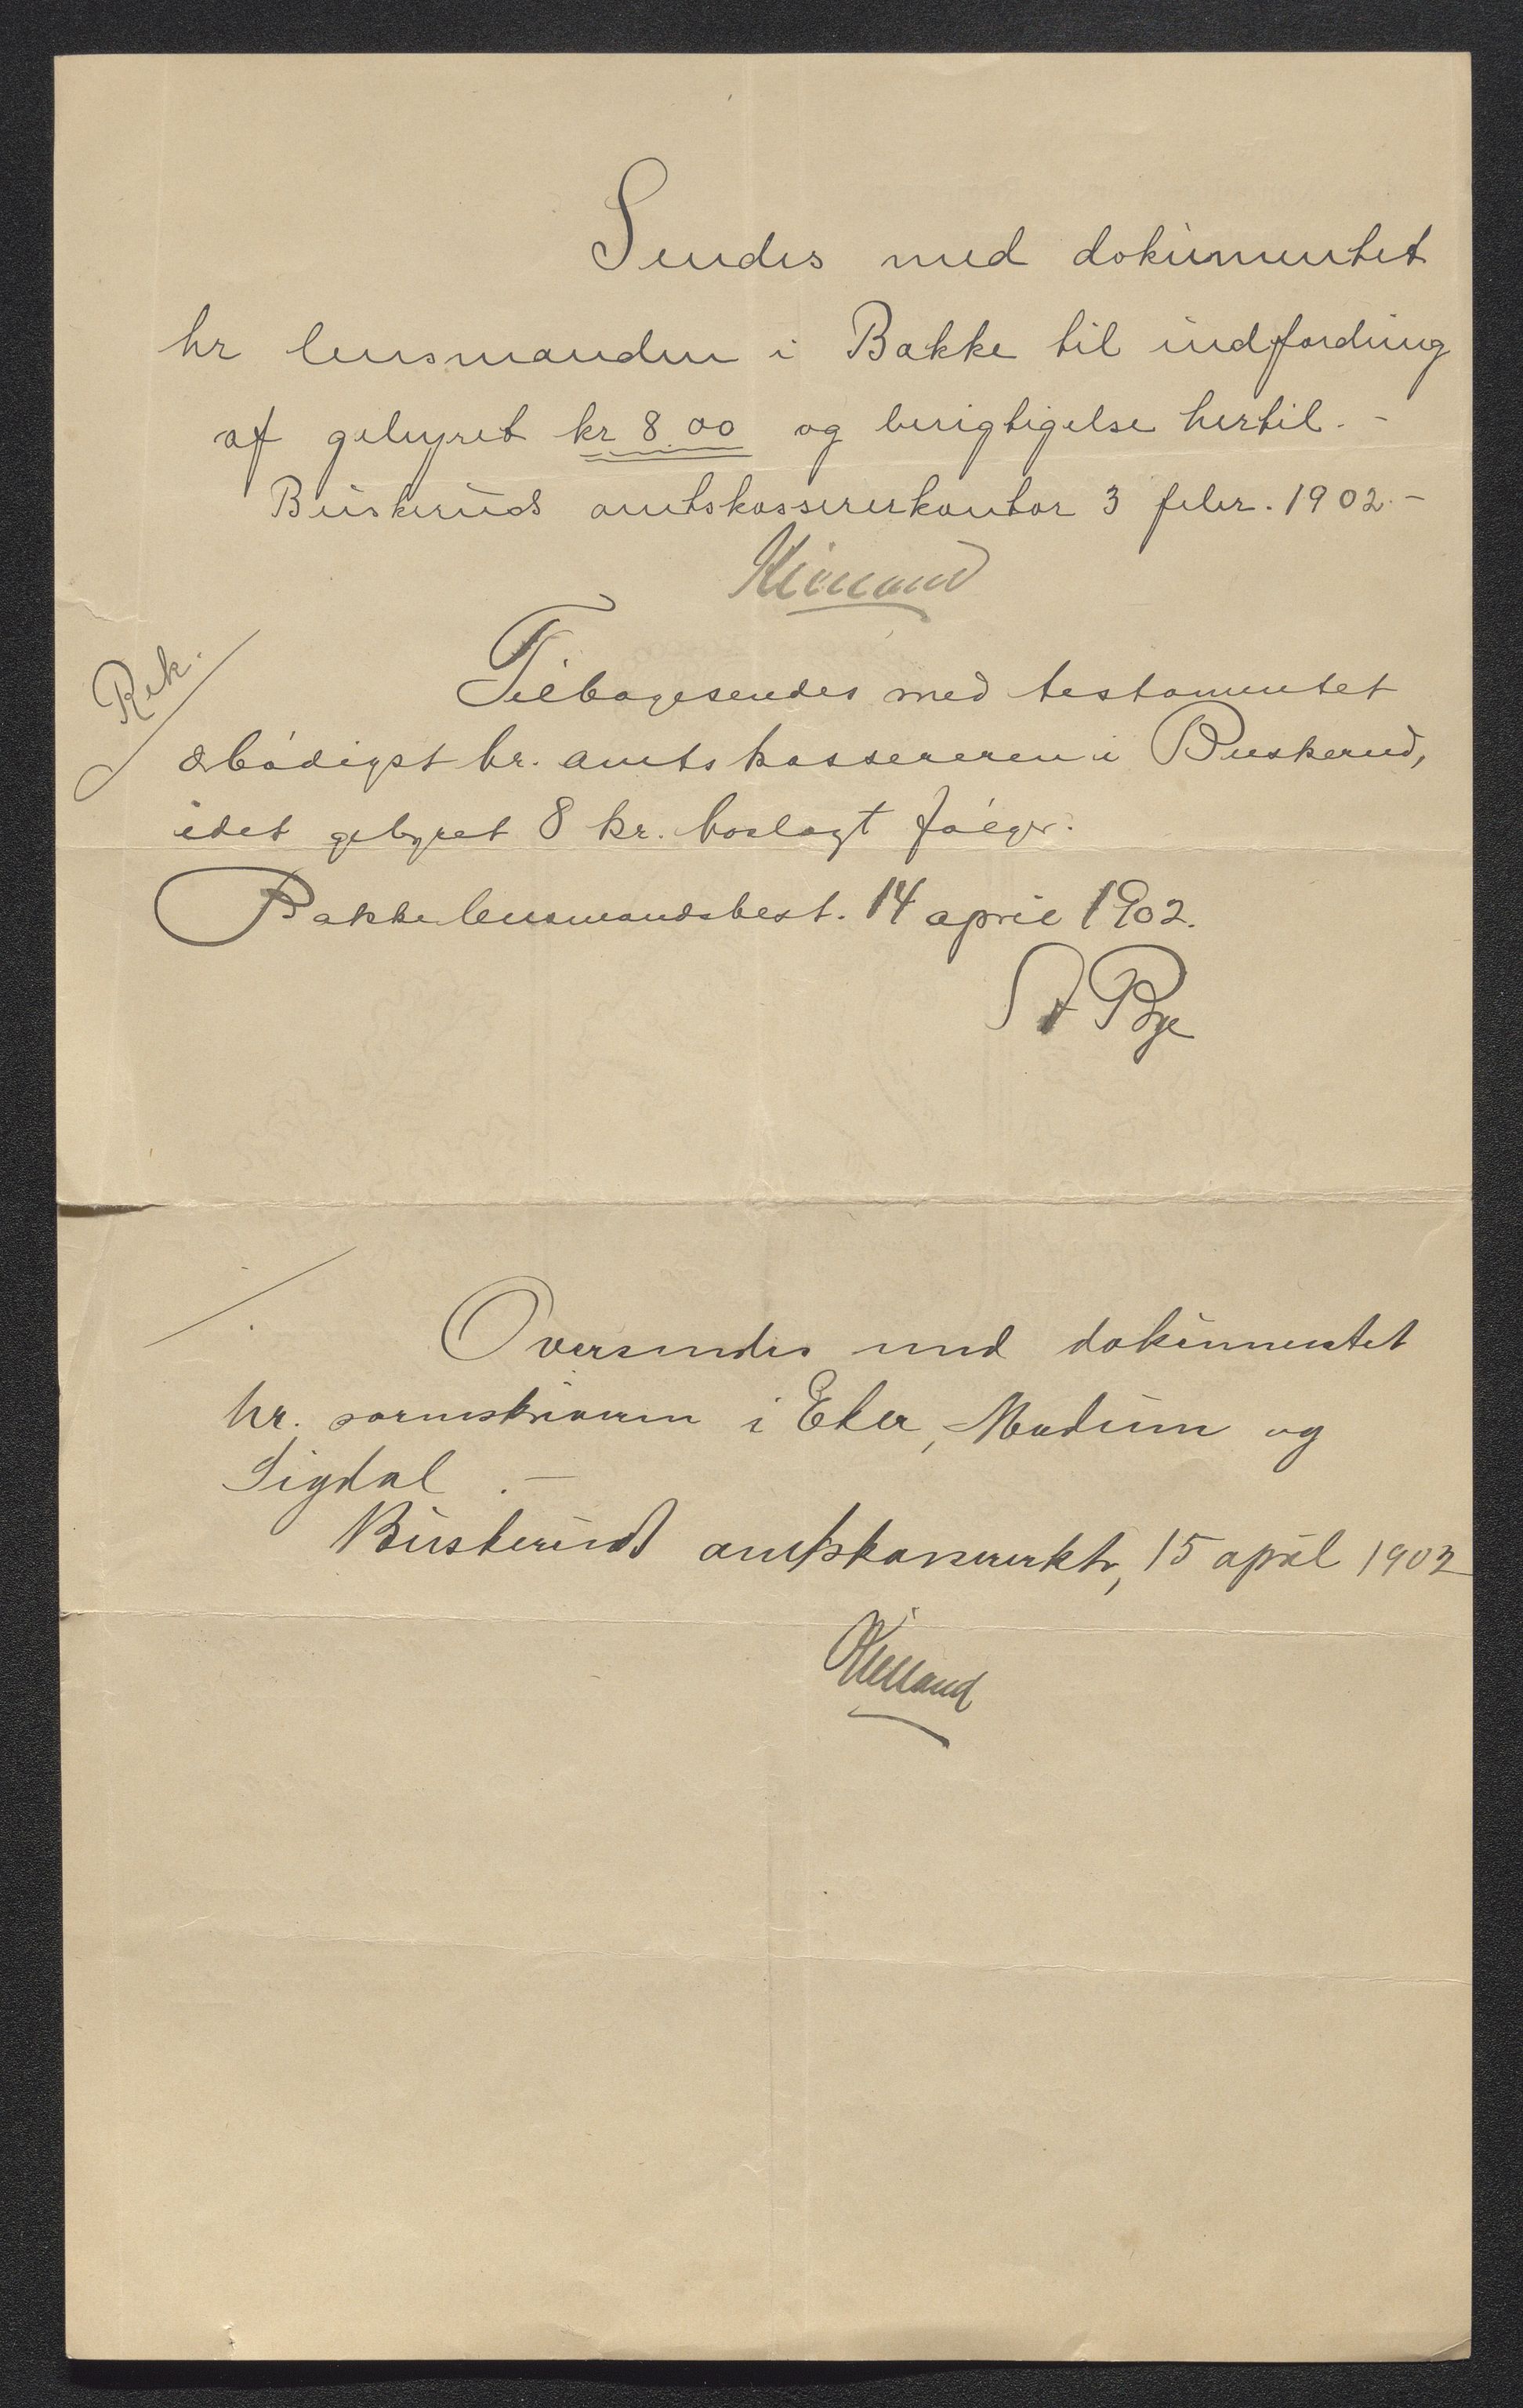 Sendes med dokumentet
hr lensmanden i Bakke til indfordring
af gebyret kr 8.00 og berigtigelse hertil. -
Buskeruds amtskassererkontor 3 febr. 1902.-
Kielland
Rek.
Tilbagesendes med testamentet
ærbödigst hr. amtskassereren i Buskerud,
idet gebyret 8 kr. hoslagt fölger.
Bakke lensmandsbest. 14 april 1902.
Bye
Oversendes med dokumentet
hr. sorenskriveren i Eker, Modum og
Sigdal. -
Buskeruds amtskassererktr, 15 april 1902
Kielland